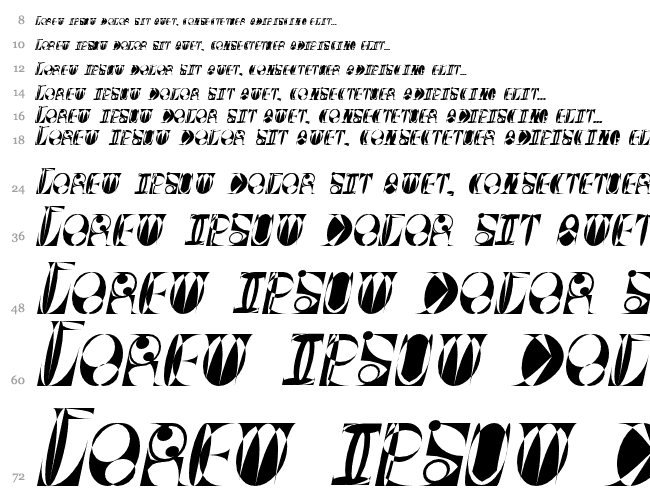 8 Lorem ipsum dolor sit amet, consectetuer adipiscing elit...
10 Lorem ipsum dolor sit amet, consectetuer adipiscing elit...
12 Lorem ipsum dolor sit amet, consectetuer adipiscing elit...
14 Lorem ipsum dolor sit amet, consectetuer adipiscing elit...
16 Lorem ipsum dolor sit amet, consectetuer adipiscing elit...
18 Lorem ipsum dolor sit amet, consectetuer adipiscing el
24 Lorem ipsum dolor sit amet, consectetuer
36 Lorem ipsum dolor sit amet
48 Lorem ipsum dolor s
60 Lorem ipsum dol
72 Lorem ipsum